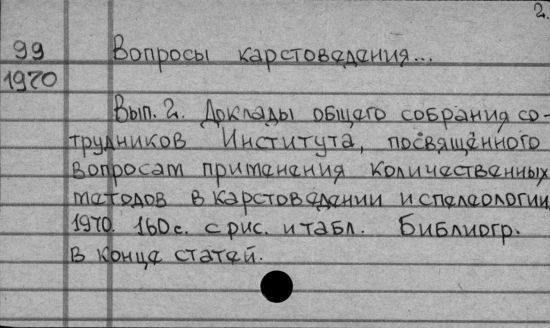 2.
99 Вопросы карстоведения...
1970
Вып. 2. Доклады общего собрания со-
трудников Института, посвящённого
вопросам применения количественных
методов в карстоведении и спелеологии
1970. 160 с. с рис. и табл. Библиогр.
в конце статей.